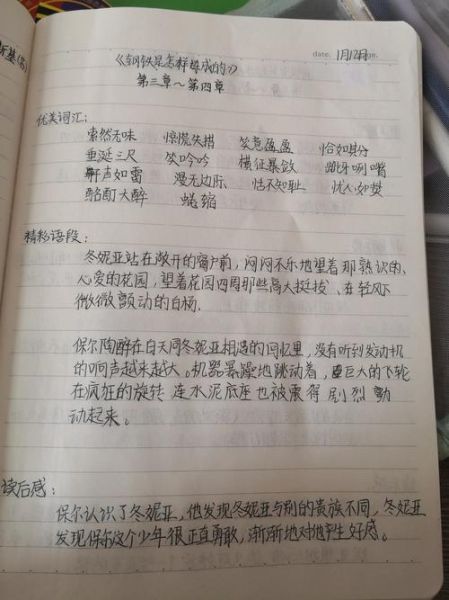 date. 1月12日
《钢铁是怎样炼成的》
第三章～第四章
优美词汇:
索然无味 惊慌失措 笑意盈盈 恰如其分
垂涎三尺 笑吟吟 横征暴敛 龇牙咧嘴
鼾声如雷 漫无边际 恬不知耻 忧心如焚
酩酊大醉 蜷缩
精彩语段:
冬妮亚站在敞开的窗户前，闷闷不乐地望着那熟识的、
心爱的花园，望着花园四周那些高大挺拔、在轻风下
微微颤动的白杨.
保尔陶醉在白天同冬妮亚相遇的回忆里，没有听到发动机
的响声越来越大。机器暴躁地跳动着，巨大的飞轮
在疯狂的旋转 连水泥底座也被震得剧烈動
动起来。
读后感:
保尔认识了冬妮亚，他发现冬妮亚与别的贵族不同，冬妮亚
发现保尔这个少年很正直勇敢，渐渐地对他产生好感。